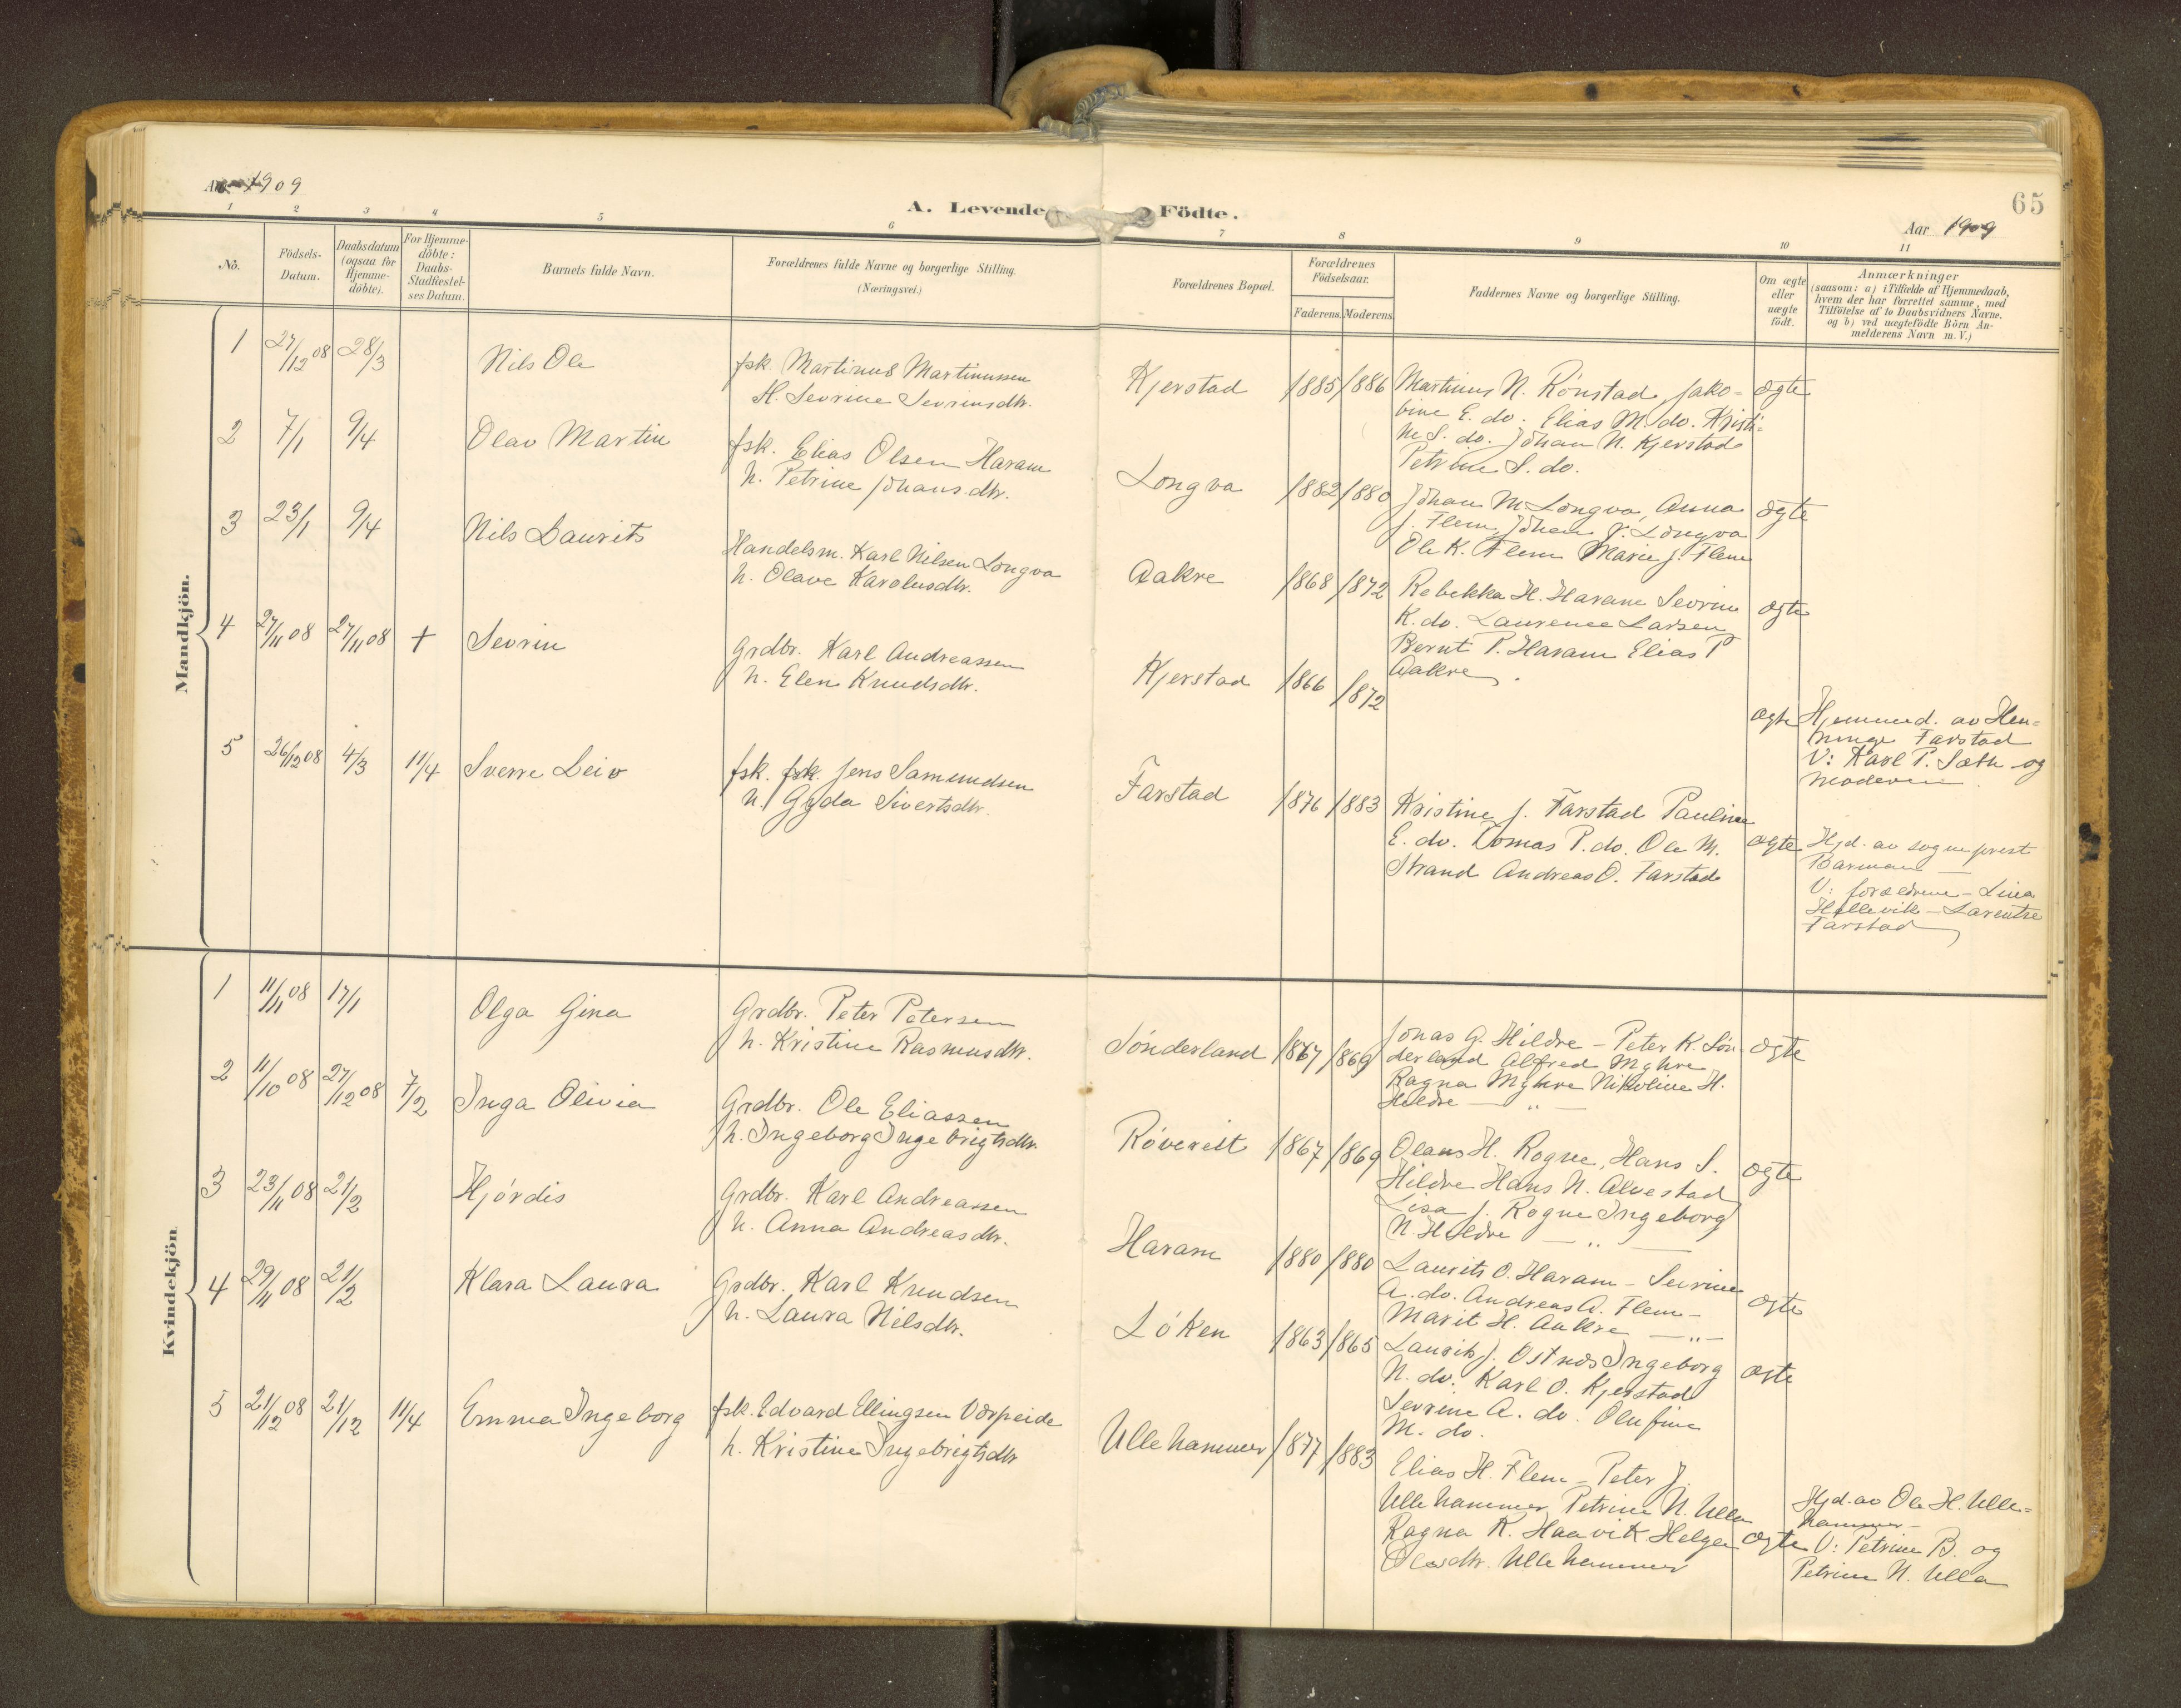 Aar 1909
A. Levende Födte.
65
Aar 1909
1 2 3 4 5 6 7 8 9 10 11
No.
Födsels-
Datum.
Daabsdatum
(ogsaa for
Hjemme-
döbte).
For Hjemme-
döbte:
Daabs-
Stadfæstel-
ses Datum.
Barnets fulde Navn.
Forældrenes fulde Navne og borgerlige Stilling.
(Næringsvei.)
Forældrenes Bopæl.
Forældrenes
Födselsaar.
Faderens. Moderens.
Faddernes Navne og borgerlige Stilling.
Om ægte
eller
uægte
födt.
Anmærkninger
(saasom: a) i Tilfælde af Hjemmedaab,
hvem der har forrettet samme, med
Tilföielse af to Daabsvidners Navne.
og b) ved uægtefödte Börn An-
melderens Navn m. V.)
Mandkjön.
1 27/12 08 28/3 Nils Ole
fsk. Martinus Martinussen
H. Sevrine Sevrinsdtr.
Kjerstad 1885 1886
Martinus N. Rönstad, Jako-
bine E. do. Elias M. do. Kristi-
ne S. do. Johan N. Kjerstad
Petrine S. do.
ægte
2 7/1 9/4 Olav Martin
fsk. Elias Olsen Haram
h. Petrine Johansdtr.
Longva 1882 1880
Johan M. Longva, Anna
J. Flem, Johan J. Longva
Ole K. Flem Marie J. Flem
ægte
3 23/1 9/4 Nils Laurits
Handelsm. Karl Nilsen Longva
h. Olave Karolusdtr.
Aakre 1868 1872
Rebekka H. Haram Sevrine
K. do. Laurence Larsen
Bernt P. Haram Elias P
Aakre.
ægte
4 27/11 08 27/11 08 + Sevrin
Grdbr. Karl Andreassen
h. Elen Knudsdtr.
Kjerstad 1866 1872
ægte
Hjemmed. av Hen-
ninge Farstad
V: Karl P. Sæth og
moderen
5 26/12 08 4/3 11/4 Sverre Leiv
fsk. fsk. Jens Samundsen
h. Gyda Sivertsdtr.
Farstad 1876 1883
Kristine J. Farstad Pauline
E. do. Tomas P. do. Ole M.
Strand Andreas O. Farstad
ægte
Hjd. av sogneprest
Barman —
V: forældrene – Lina
Hellevik – Larentse
Farstad
Kvindekjön
1 11/11 08 17/1 Olga Gina
Grdbr. Peter Petersen
h. Kristine Rasmusdtr.
Sönderland 1867 1869
Jonas G. Hildre – Peter K. Sön-
derland Alfred Myhre
Ragna Myhre Nikoline H.
Hildre — „ —
ægte
2 11/10 08 27/12 08 7/2 Inga Olivia
Grdbr. Ole Eliassen
h. Ingeborg Ingebrigtsdtr.
Röverelt 1867 1869
Olaus H. Rogne, Hans S.
Hildre Hans N. Alvestad
Lisa J. Rogne Ingeborg
N. Hildre — „ —
ægte
3 23/11 08 21/2 Hjördis
Grdbr. Karl Andreassen
h. Anna Andreasdtr.
Haram 1880 1880
Laurits O. Haram – Sevrine
A. do. Andreas A. Flem –
Marit H. Aakre — „ —
ægte
4 29/11 08 21/2 Klara Laura
Grdbr. Karl Knudsen
h. Laura Nilsdtr.
Löken 1863 1865
Laurits J. Ostnes Ingeborg
N. do. Karl O. Kjerstad
Sevrine A. do. Olufine
M. do.
ægte
5 21/12 08 21/12 11/4 Emma Ingeborg
fsk. Edvard Ellingsen Varpeide
h. Kristine Ingebrigtsdtr
Ullehammer 1877 1883
Elias H. Flem – Peter J.
Ullehammer, Petrine N. Ulla
Ragna K. Haavik Helga
Olesdtr. Ullehammer
ægte
Hjd. av Ole H. Ulle-
hammer –
V: Petrine B. og
Petrine N. Ulla